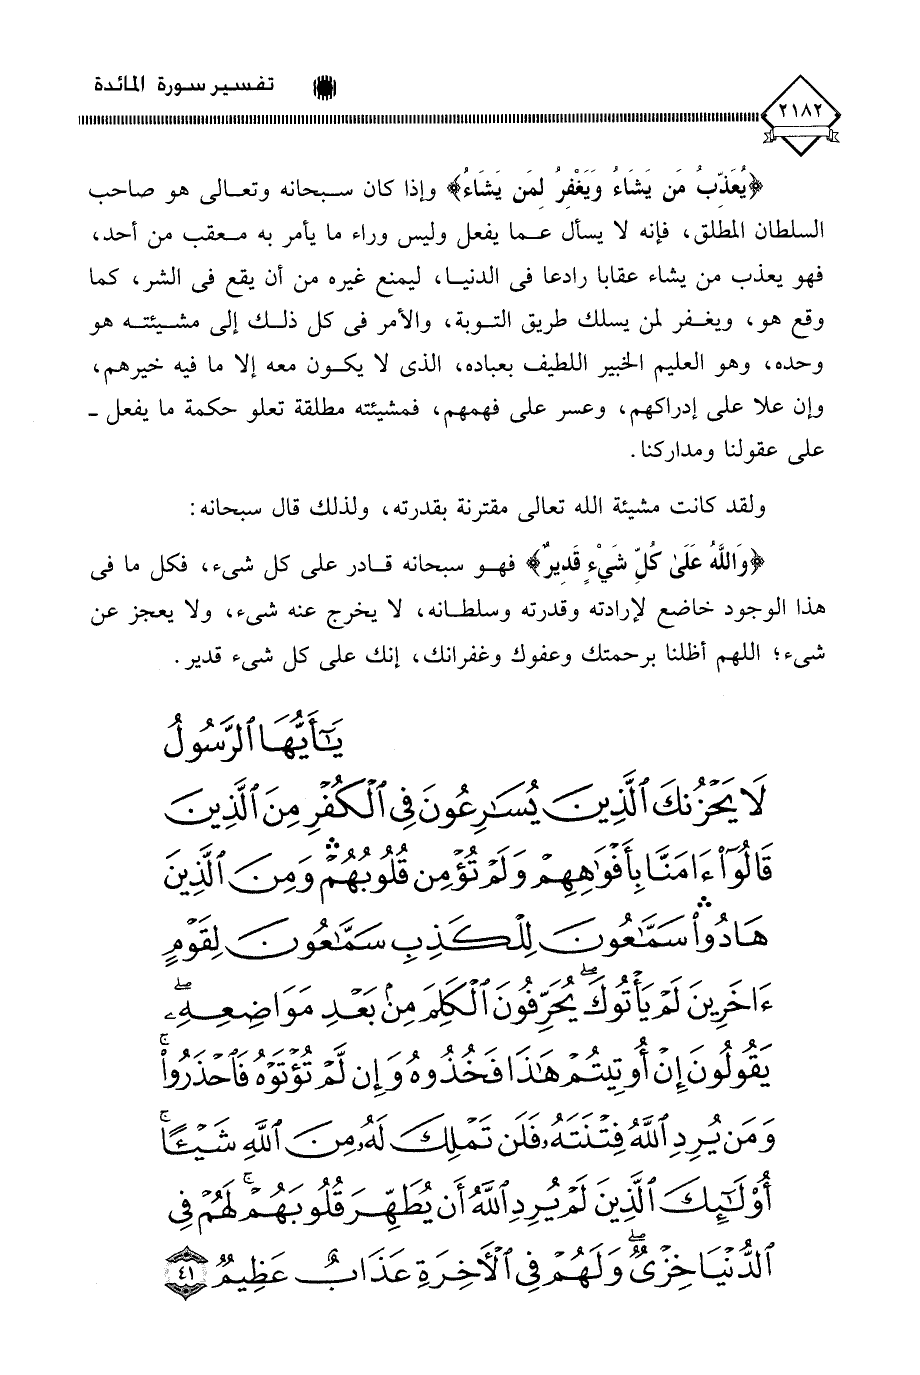 تفسير سورة المائدة
٢١٨٢
﴿يُعَذِّبُ مَن يَشَاءُ وَيَغْفِرُ لِمَن يَشَاءُ﴾ وإذا كان سبحانه وتعالى هو صاحب
السلطان المطلق، فإنه لا يسأل عما يفعل وليس وراء ما يأمر به معقب من أحد،
فهو يعذب من يشاء عقابا رادعا فى الدنيا، ليمنع غيره من أن يقع فى الشر، كما
وقع هو، ويغفر لمن يسلك طريق التوبة، والأمر فى كل ذلك إلى مشيئته هو
وحده، وهو العليم الخبير اللطيف بعباده، الذى لا يكون معه إلا ما فيه خيرهم،
وإن علا على إدراكهم، وعسر على فهمهم، فمشيئته مطلقة تعلو حكمة ما يفعل -
على عقولنا ومداركنا.
ولقد كانت مشيئة الله تعالى مقترنة بقدرته، ولذلك قال سبحانه:
﴿وَاللَّهُ عَلَىٰ كُلِّ شَيْءٍ قَدِيرٌ﴾ فهو سبحانه قادر على كل شىء، فكل ما فى
هذا الوجود خاضع لإرادته وقدرته وسلطانه، لا يخرج عنه شىء، ولا يعجز عن
شىء؛ اللهم أظلنا برحمتك وعفوك وغفرانك، إنك على كل شىء قدير.
يَٰٓأَيُّهَا ٱلرَّسُولُ
لَا يَحْزُنكَ ٱلَّذِينَ يُسَٰرِعُونَ فِى ٱلْكُفْرِ مِنَ ٱلَّذِينَ
قَالُوٓا۟ ءَامَنَّا بِأَفْوَٰهِهِمْ وَلَمْ تُؤْمِن قُلُوبُهُمْ ۛ وَمِنَ ٱلَّذِينَ
هَادُوا۟ ۛ سَمَّٰعُونَ لِلْكَذِبِ سَمَّٰعُونَ لِقَوْمٍ
ءَاخَرِينَ لَمْ يَأْتُوكَ ۖ يُحَرِّفُونَ ٱلْكَلِمَ مِنۢ بَعْدِ مَوَاضِعِهِۦ ۖ
يَقُولُونَ إِنْ أُوتِيتُمْ هَٰذَا فَخُذُوهُ وَإِن لَّمْ تُؤْتَوْهُ فَٱحْذَرُوا۟ ۚ
وَمَن يُرِدِ ٱللَّهُ فِتْنَتَهُۥ فَلَن تَمْلِكَ لَهُۥ مِنَ ٱللَّهِ شَيْـًٔا ۚ
أُو۟لَٰٓئِكَ ٱلَّذِينَ لَمْ يُرِدِ ٱللَّهُ أَن يُطَهِّرَ قُلُوبَهُمْ ۚ لَهُمْ فِى
ٱلدُّنْيَا خِزْىٌ ۖ وَلَهُمْ فِى ٱلْءَاخِرَةِ عَذَابٌ عَظِيمٌ ٤١